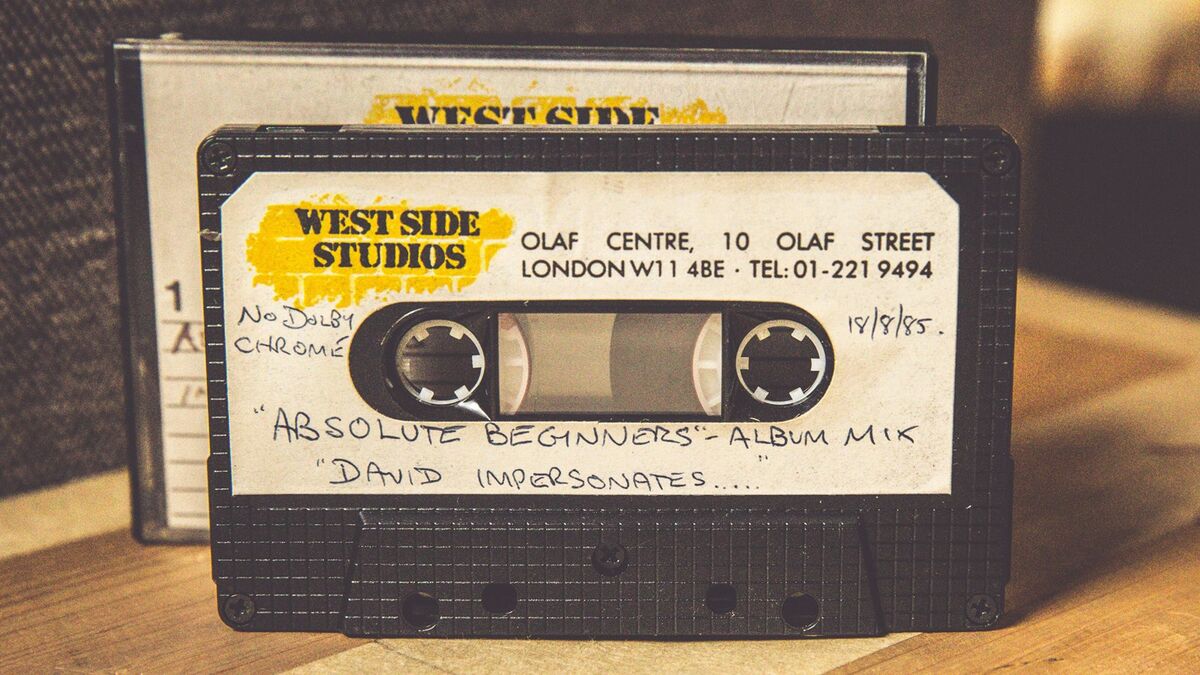 WEST SIDE
WEST SIDE
STUDIOS
OLAF CENTRE, 10 OLAF STREET
LONDON W11 4BE · TEL: 01-221 9494
1
NO DOLBY
CHROME
18/8/85.
"ABSOLUTE BEGINNERS" - ALBUM MIX
"DAVID IMPERSONATES....."